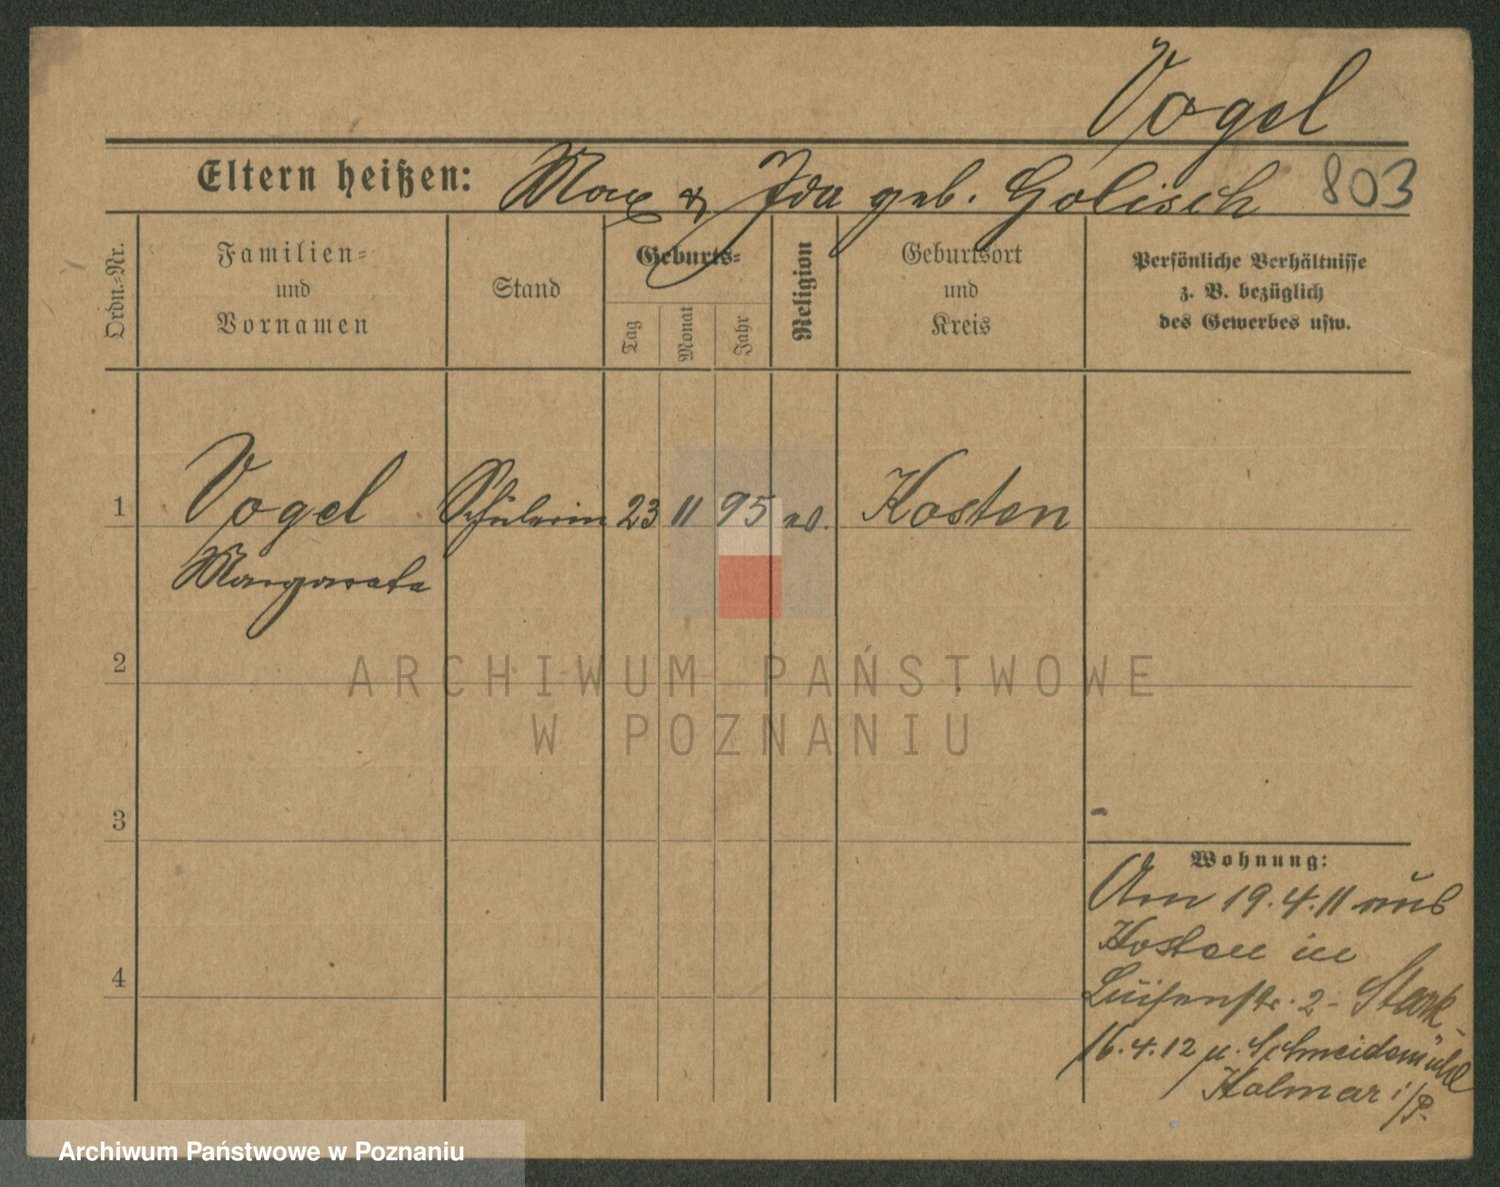 Vogel
Eltern heißen: Max & Ida geb. Golisch 803
Ordn.-Nr.
Familien-
und
Vornamen
Stand
Geburts-
Tag
Monat
Jahr
Religion
Geburtsort
und
Kreis
Persönliche Verhältnisse
z. B. bezüglich
des Gewerbes usw.
1 Vogel Schülerin 23 11 95 Kosten
Margareta
2
ARCHIWUM PAŃSTWOWE
W POZNANIU
3
Wohnung:
Am 19.4.11 aus
Kosten in
4
Luisenstr. 2 - Stark
16.4.12 n. Schneidemühl
Kolmar i/P.
Archiwum Państwowe w Poznaniu